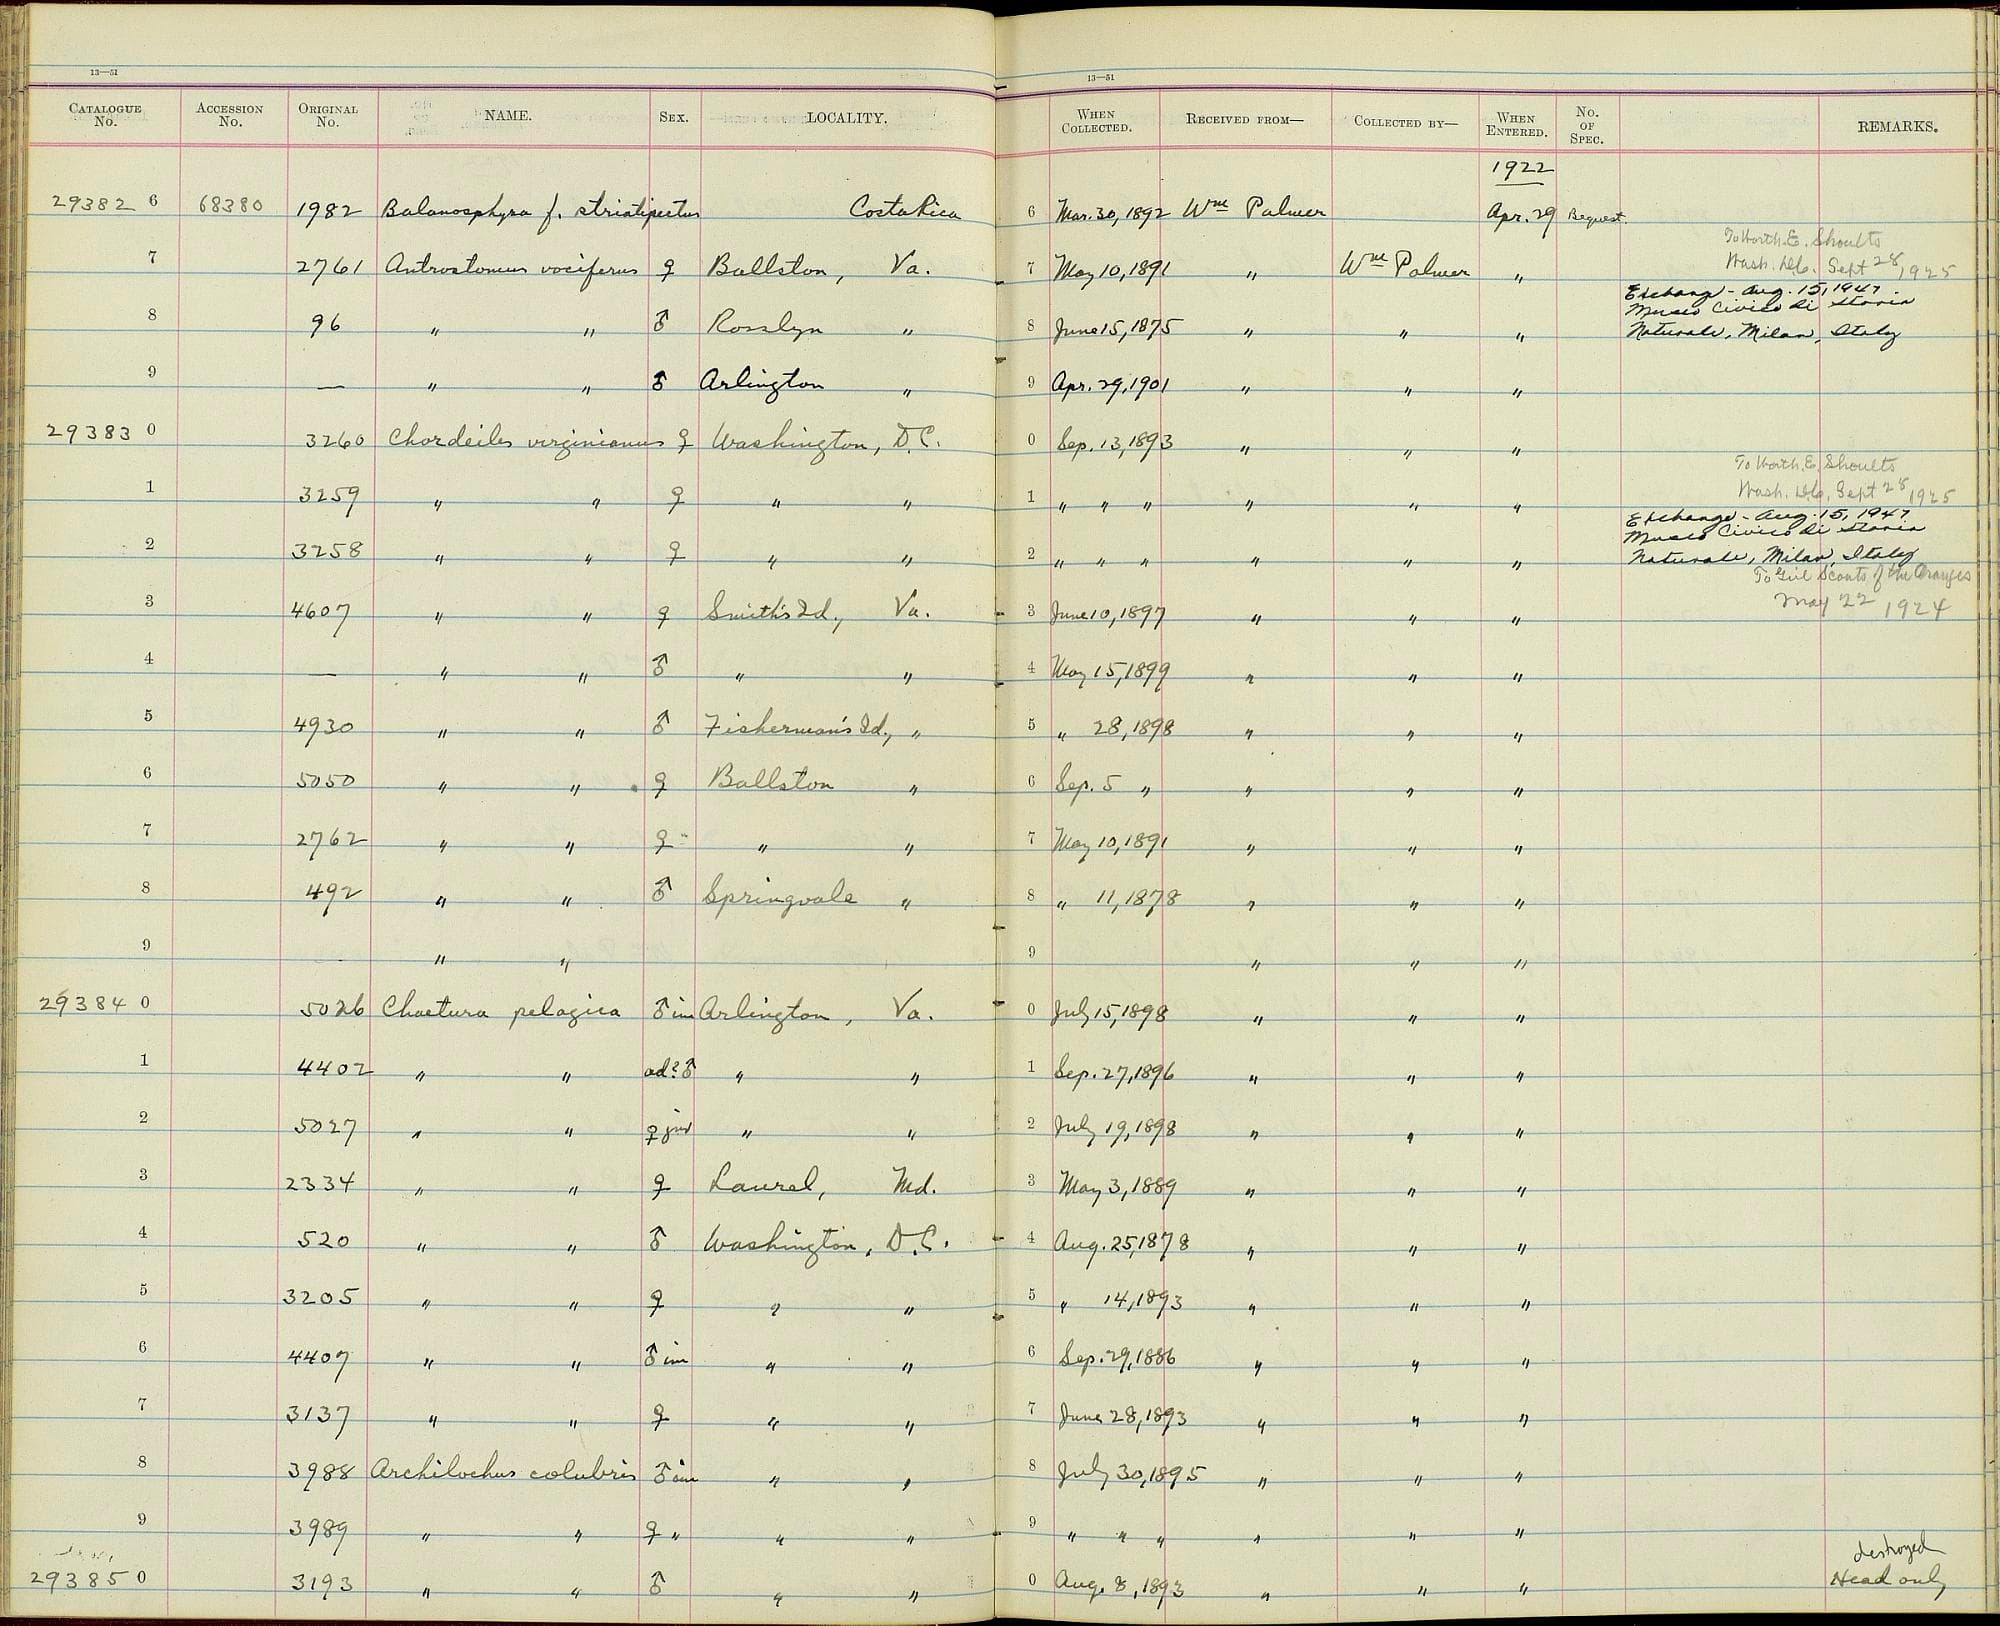 13—51
13—51
CATALOGUE No. ACCESSION No. ORIGINAL No. NAME. SEX. LOCALITY. WHEN COLLECTED. RECEIVED FROM— COLLECTED BY— WHEN ENTERED. No. OF SPEC. REMARKS.
1922
29382 6 68380 1982 Balanosphyra f. striatipectus Costa Rica 6 Mar. 30, 1892 Wm Palmer Apr. 29 Bequest.
To Worth. E. Shoults
7 2761 Antrostomus vociferus ♀ Ballston, Va. 7 May 10, 1891 " Wm Palmer " Wash. D.C. Sept 28, 1925
Exchange - Aug. 15, 1947.
Museo Civico di Storia
8 96 " " ♂ Rosslyn " 8 June 15, 1875 " " " Naturale, Milan, Italy
9 — " " ♂ Arlington " 9 Apr. 29, 1901 " " "
29383 0 3260 Chordeiles virginianus ♀ Washington, D.C. 0 Sep. 13, 1893 " " "
To Worth. E. Shoults
1 3259 " " ♀ " " 1 " " " " " " Wash. D.C. Sept 28, 1925
Exchange - Aug. 15, 1947
Museo Civico di Storia
2 3258 " " ♀ " " 2 " " " " " " Naturale, Milan, Italy
To Girl Scouts of the Oranges
3 4607 " " ♀ Smith's Id., Va. 3 June 10, 1897 " " " May 22 1924
4 — " " ♂ " " 4 May 15, 1899 " " "
5 4930 " " ♂ Fisherman's Id., " 5 " 28, 1898 " " "
6 5050 " " ♀ Ballston " 6 Sep. 5 " " " "
7 2762 " " ♀ " " 7 May 10, 1891 " " "
8 492 " " ♂ Springvale " 8 " 11, 1878 " " "
9 — " " 9 " " "
29384 0 5026 Chaetura pelagica ♂ im Arlington, Va. 0 July 15, 1898 " " "
1 4402 " " ad? ♂ " " 1 Sep. 27, 1896 " " "
2 5027 " " ♀ juv " " 2 July 19, 1898 " " "
3 2334 " " ♀ Laurel, Md. 3 May 3, 1889 " " "
4 520 " " ♂ Washington, D.C. 4 Aug. 25, 1878 " " "
5 3205 " " ♀ " " 5 " 14, 1893 " " "
6 4407 " " ♂ im " " 6 Sep. 29, 1886 " " "
7 3137 " " ♀ " " 7 June 28, 1893 " " "
8 3988 Archilochus colubris ♂ im " " 8 July 30, 1895 " " "
9 3989 " " ♀ " " " 9 " " " " " "
destroyed
29385 0 3193 " " ♂ " " 0 Aug. 8, 1893 " " " Head only